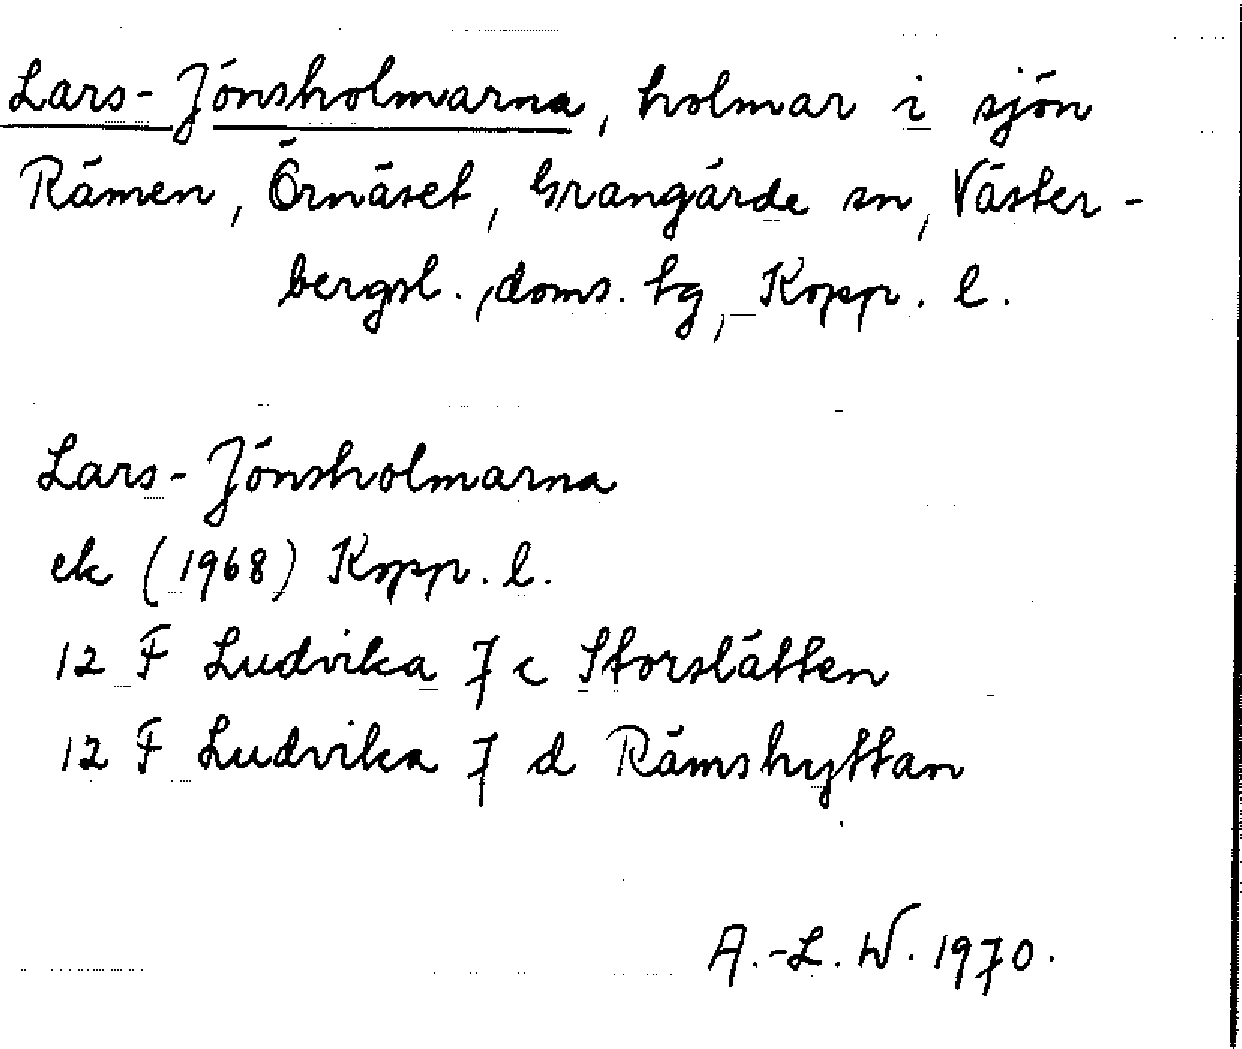 Lars-Jönsholmarna, holmar i sjön
Rämen, Örnäset, Grangärde sn, Väster-
bergsl. doms. tg, Kopp. l.
Lars-Jönsholmarna
ek (1968) Kopp. l.
12 F Ludvika 7 c Storslätten
12 F Ludvika 7 d Rämshyttan
A.-L. W. 1970.